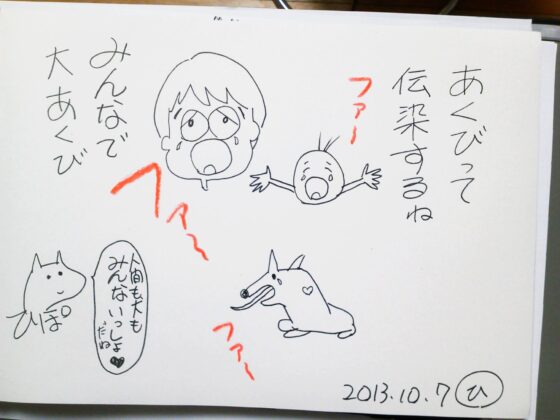 あくびって
伝染するね
ファ〜
みんなで
大あくび
ファ〜
ファ〜
人間も犬も
みんないっしょ
だね
ひぽ
2013.10.7 ひ